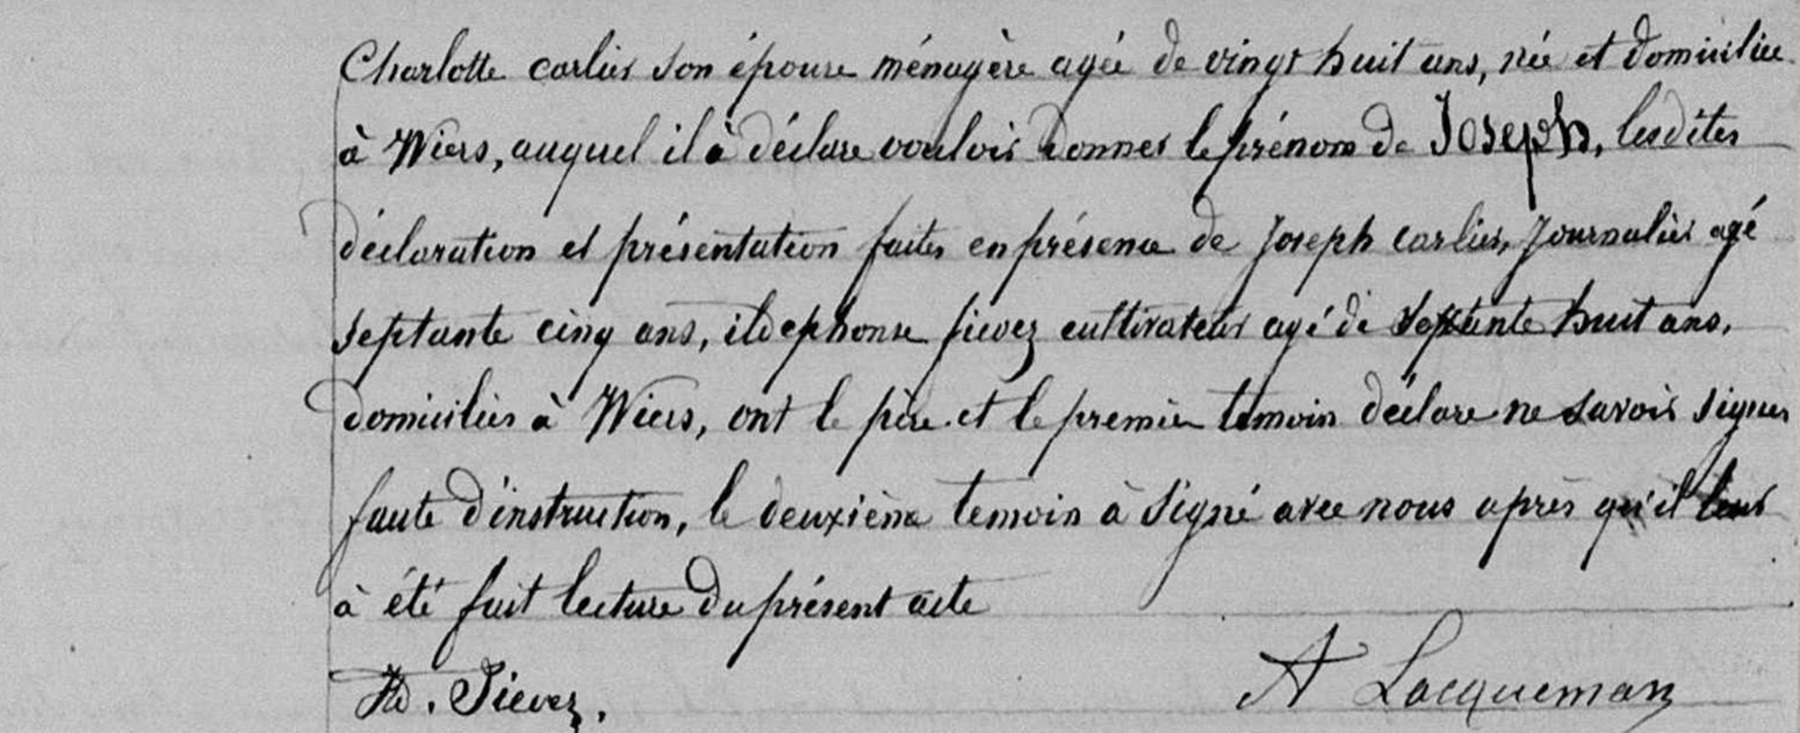 Charlotte carlier son épouse ménagère agée de vingt huit ans, née et domiciliée
à Wiers, auquel il à déclare vouloir donner le prénom de Joseph, lesdites
déclaration et présentation faites en présence de Joseph carlier, Journalier agé
septante cinq ans, ildephonse pievez cultivateur agé de septante huit ans,
domiciliés à Wiers, ont le père et le premier temoin déclare ne savoir signer
faute d'instruction, le deuxième temoin à signé avec nous après qu'il leur
à été fait lecture du présent acte
Ild. Pievez. A Lacqueman